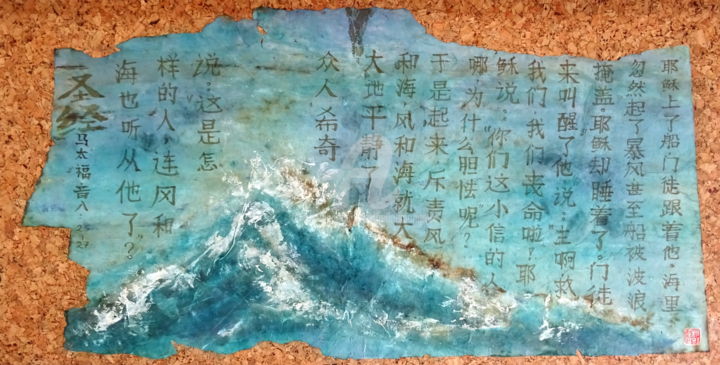 耶稣上了船门徒跟着他.海里
忽然起了暴风甚至船被波浪
掩盖耶稣却睡着了。门徒
来叫醒了他说:"主啊救
我们,我们丧命啦?"耶
稣说:"你们这小信的人
哪,为什么胆怯呢?"
于是起来,斥责风
和海,风和海就大
大地平静了
众人希奇
说:"这是怎
样的人,连风和
海也听从他了?"
圣经
马太福音八